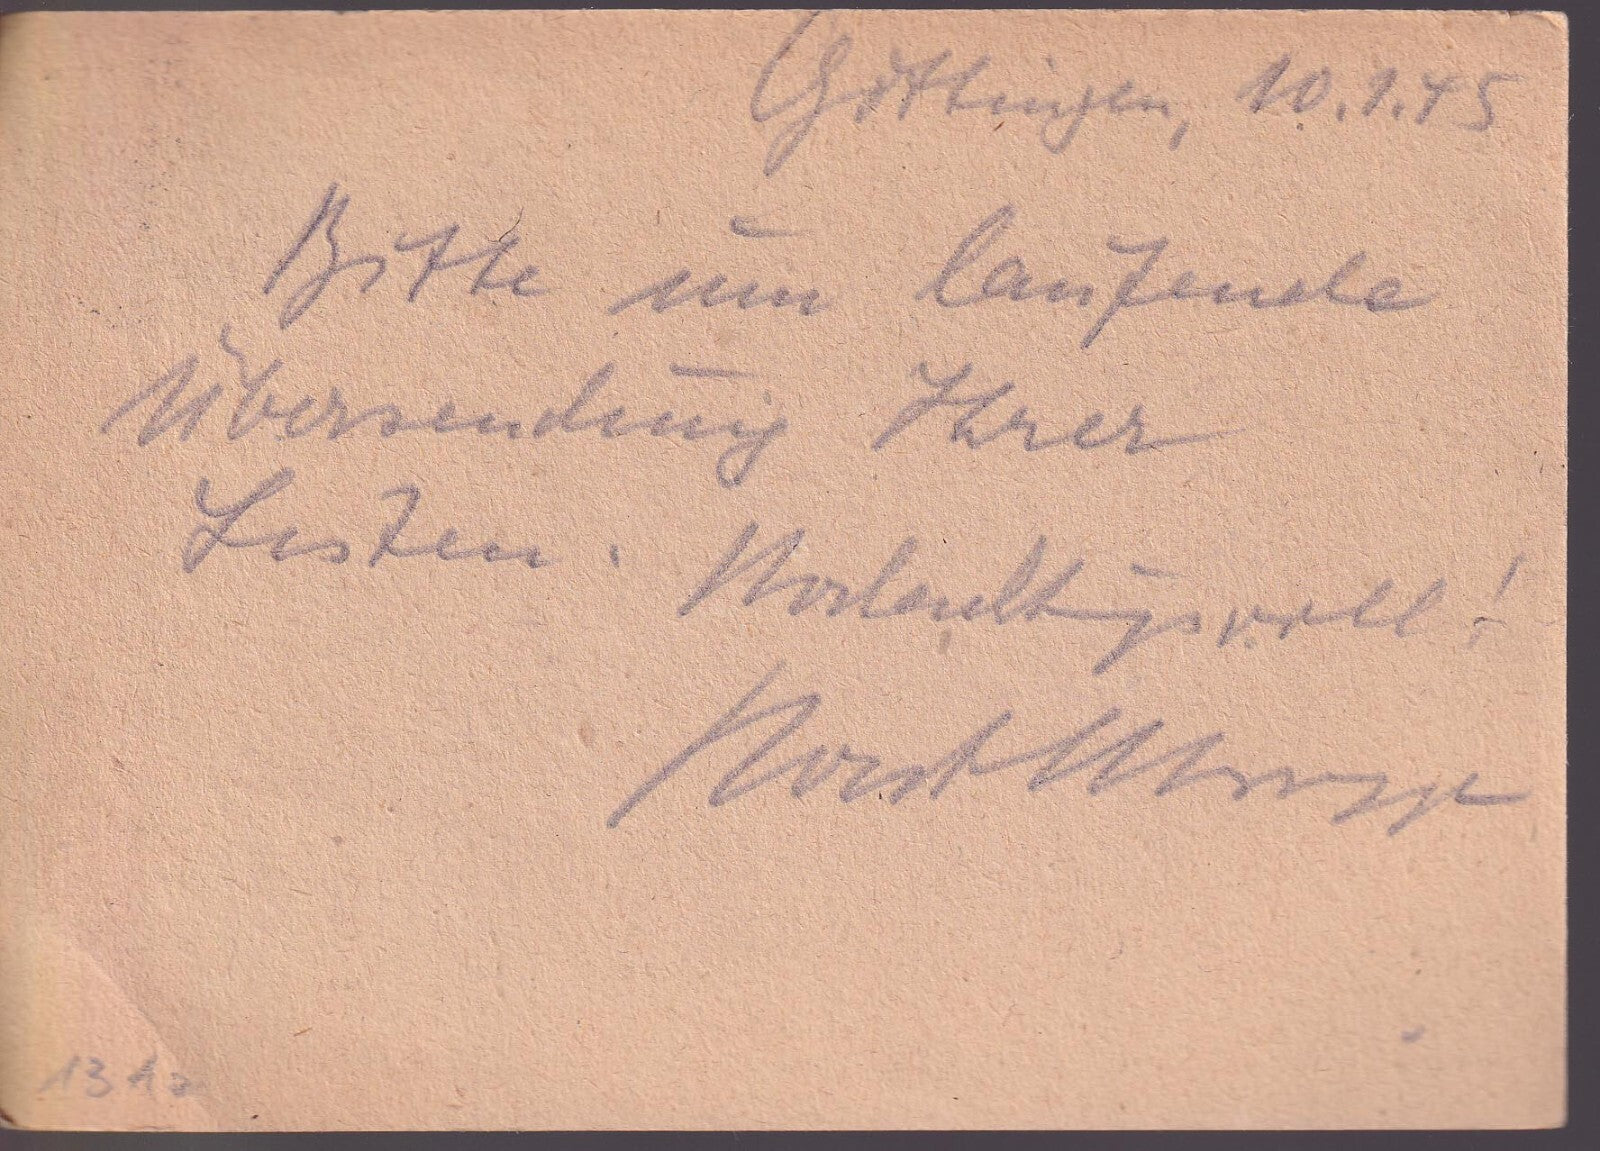 Göttingen, 10.1.45
Bitte um laufende
Übersendung Ihrer
Listen. Hochachtungsvoll!
Horst
13 A a